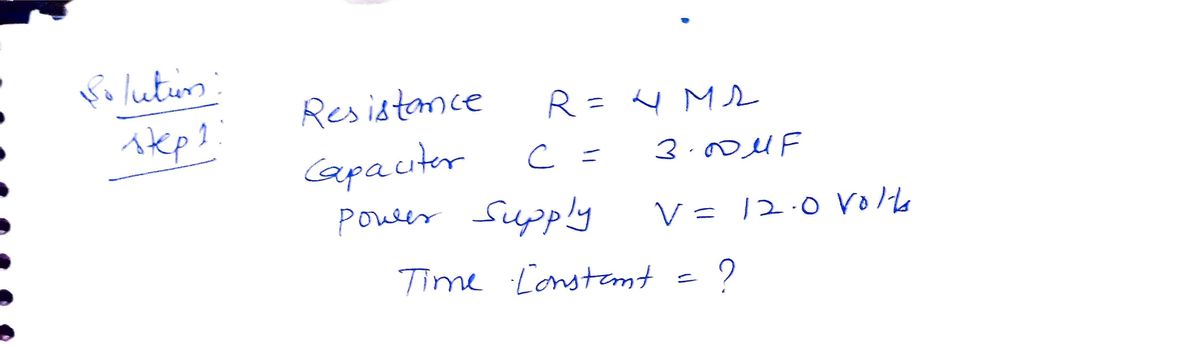 Solution:
Step 1:
Resistance R = 4 MΩ
Capacitor C = 3.00 μF
Power Supply V = 12.0 Volts
Time Constant = ?